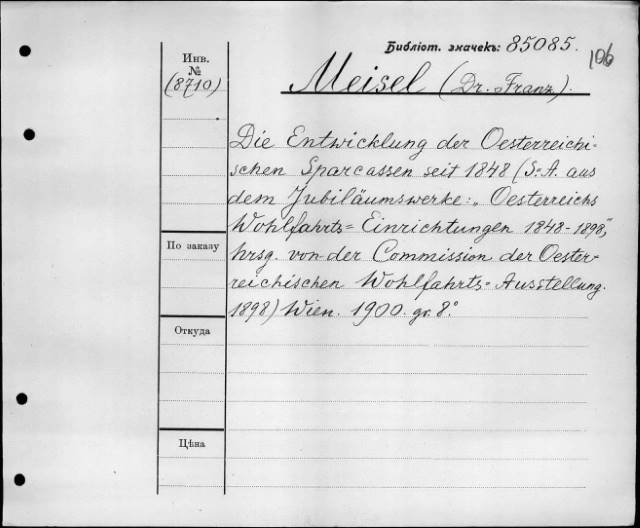 Библіот. значекъ: 85085.
106
Инв.
№
(8710)
Meisel (Dr. Franz).
Die Entwicklung der Oesterreichi-
schen Sparcassen seit 1848 (S.-A. aus
dem Jubiläumswerke: „Oesterreichs
Wohlfahrts= Einrichtungen 1848-1898",
hrsg. von der Commission der Oester-
reichischen Wohlfahrts=Ausstellung.
1898) Wien. 1900. gr. 8.°
По заказу
Откуда
Цѣна